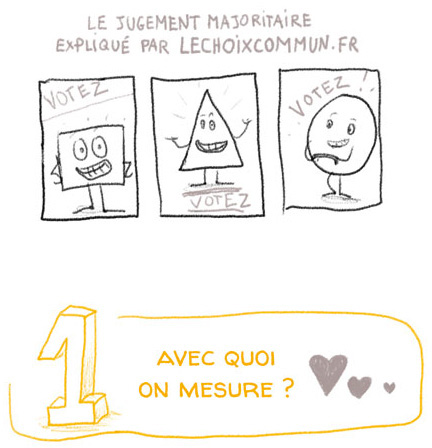 LE JUGEMENT MAJORITAIRE
EXPLIQUÉ PAR LECHOIXCOMMUN.FR
VOTEZ
VOTEZ
VOTEZ !
1
AVEC QUOI
ON MESURE ?